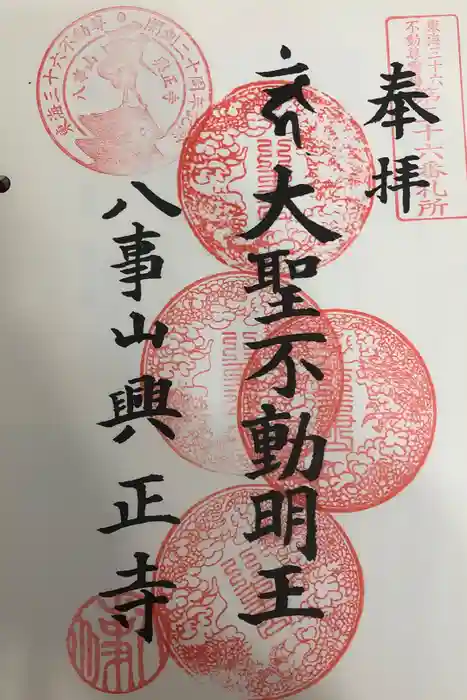 奉拝
東海三十六
不動尊
十六番札所
大聖不動明王
八事山興正寺
東海三十六不動尊
開創二十周年記念
八事山
興正寺